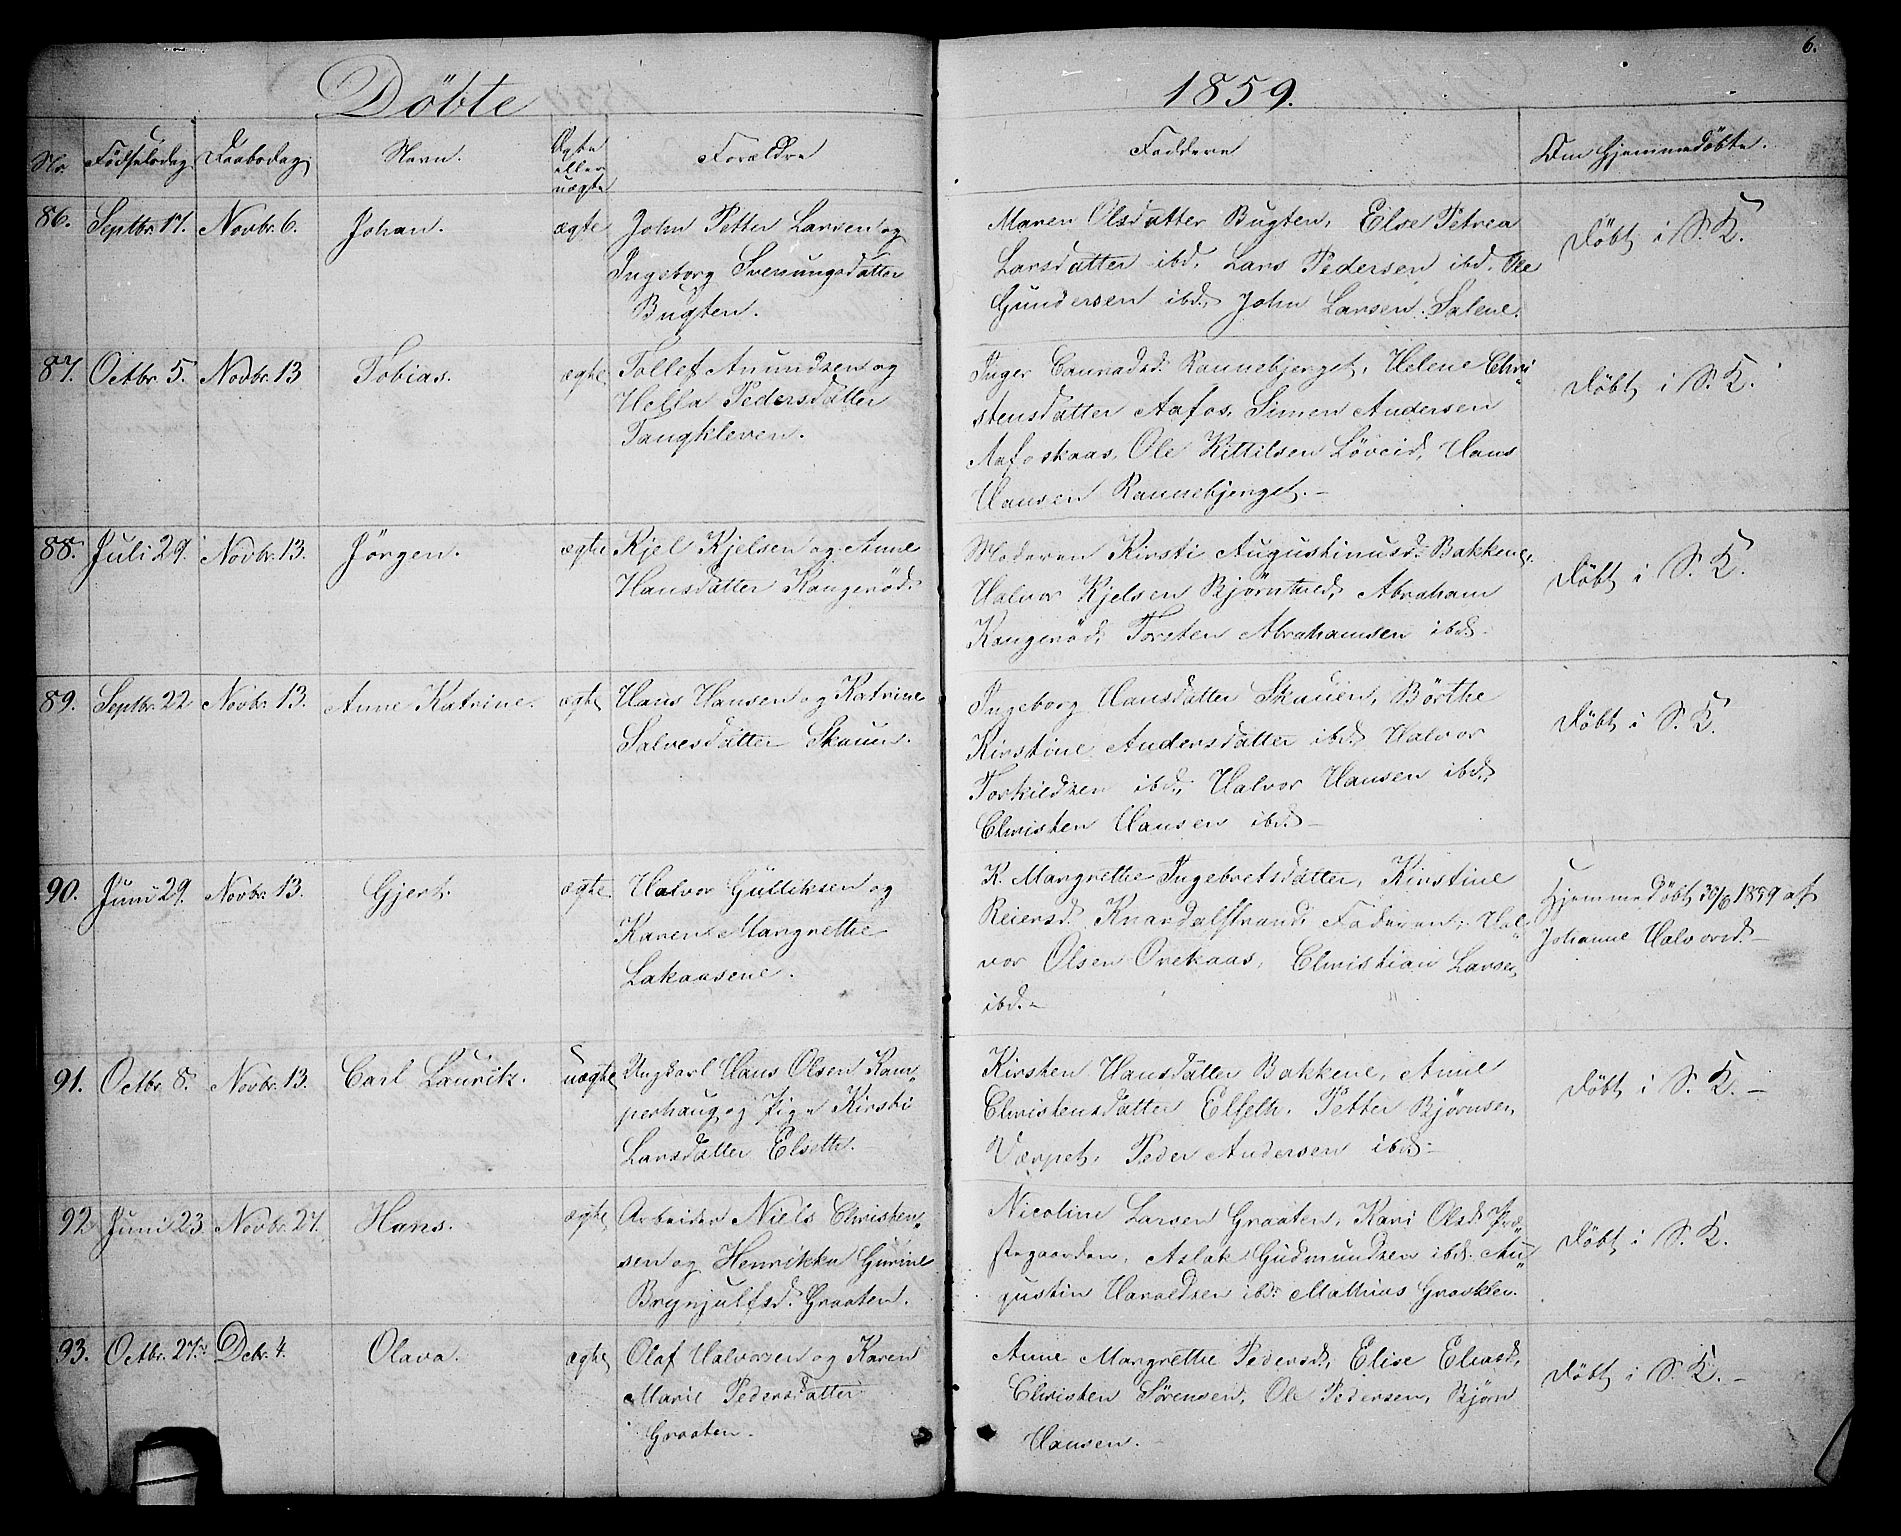 6.
Döbte
1859.
Nr. Födselsdag. Daabsdag. Navn. Ægte eller uægte Forældre Faddere Om Hjemmedöbte.
86. Septbr. 17. Novbr. 6. Johan. ægte John Petter Larsen og
Ingeborg Sversungsdatter
Bugten.
Maren Olsdatter Bugten, Else Petrea
Larsdatter ibd. Lars Pedersen ibd. Ole
Gundersen ibd, John Larsen Salene.
Döbt i S. K.
87. Octbr. 5. Novbr. 13 Tobias. ægte Tollef Amundsen og
Hella Pedersdatter
Tangkleven.
Inger Conradsd. Rannebjerget, Helene Chri-
stensdatter Aafos, Simen Andersen
Aafoskaas, Ole Kittilsen Löveid, Hans
Hansen Rannebjerget.-
Döbt i S. K.
88. Juli 29. Novbr. 13. Jörgen. ægte Kjel Kjelsen og Anne
Hansdatter Kangeröd.
Moderen Kirsti Augustinusd. Bakkene,
Halvor Kjelsen Björntved, Abraham
Kangeröd, Torsten Abrahamsen ibd.-
Döbt i S. K.
89. Septbr. 22 Novbr. 13. Anne Katrine. ægte Hans Hansen og Katrine
Salvesdatter Skauen.
Ingeborg Hansdatter Skauen, Börthe
Kirstine Andersdatter ibd. Halvor
Torkildsen ibd., Halvor Hansen ibd.,
Christen Hansen ibd.-
Döbt i S. K.
90. Juni 29. Novbr. 13. Gjert. ægte Halvor Gulliksen og
Karen Margrethe
Lakaasene.
K. Margrethe Ingebretsdatter, Kirstine
Reiersd. Knardalstrand, Faderen, Hal-
vor Olsen Ovekaas, Christian Larsen
ibd.-
Hjemmedöbt 30/6 1859 af
Johanne Halvorsd.-
91. Octbr. 8. Novbr. 13. Carl Lauritz. uægte Ungkarl Hans Olsen Kam-
perhaug og Pige Kirsti
Larsdatter Elseth.
Kirsten Hansdatter Bakkene, Anne
Christensdatter Elseth, Petter Björnsen
Værpet, Peder Andersen ibd.-
Döbt i S. K.-
92 Juni 23. Novbr. 27. Hans. ægte Arbeider Niels Christen-
sen og Henrikka Gurine
Brynjulfsd. Graaten.
Nicoline Larsen Graaten, Kari Olsd. Præ-
stegaarden, Aslak Gudmundsen ibd. Au-
gustin Haraldsen ibd. Mathias Gravklev.
Döbt i S. K.
93. Octbr. 27. Dcbr. 4. Olava. ægte Olaf Halvorsen og Karen
Marie Pedersdatter
Graaten.
Anne Margrethe Pedersd., Elise Eliasd.,
Christen Sörensen, Ole Pedersen, Björn
Hansen.-
Döbt i S. K.-